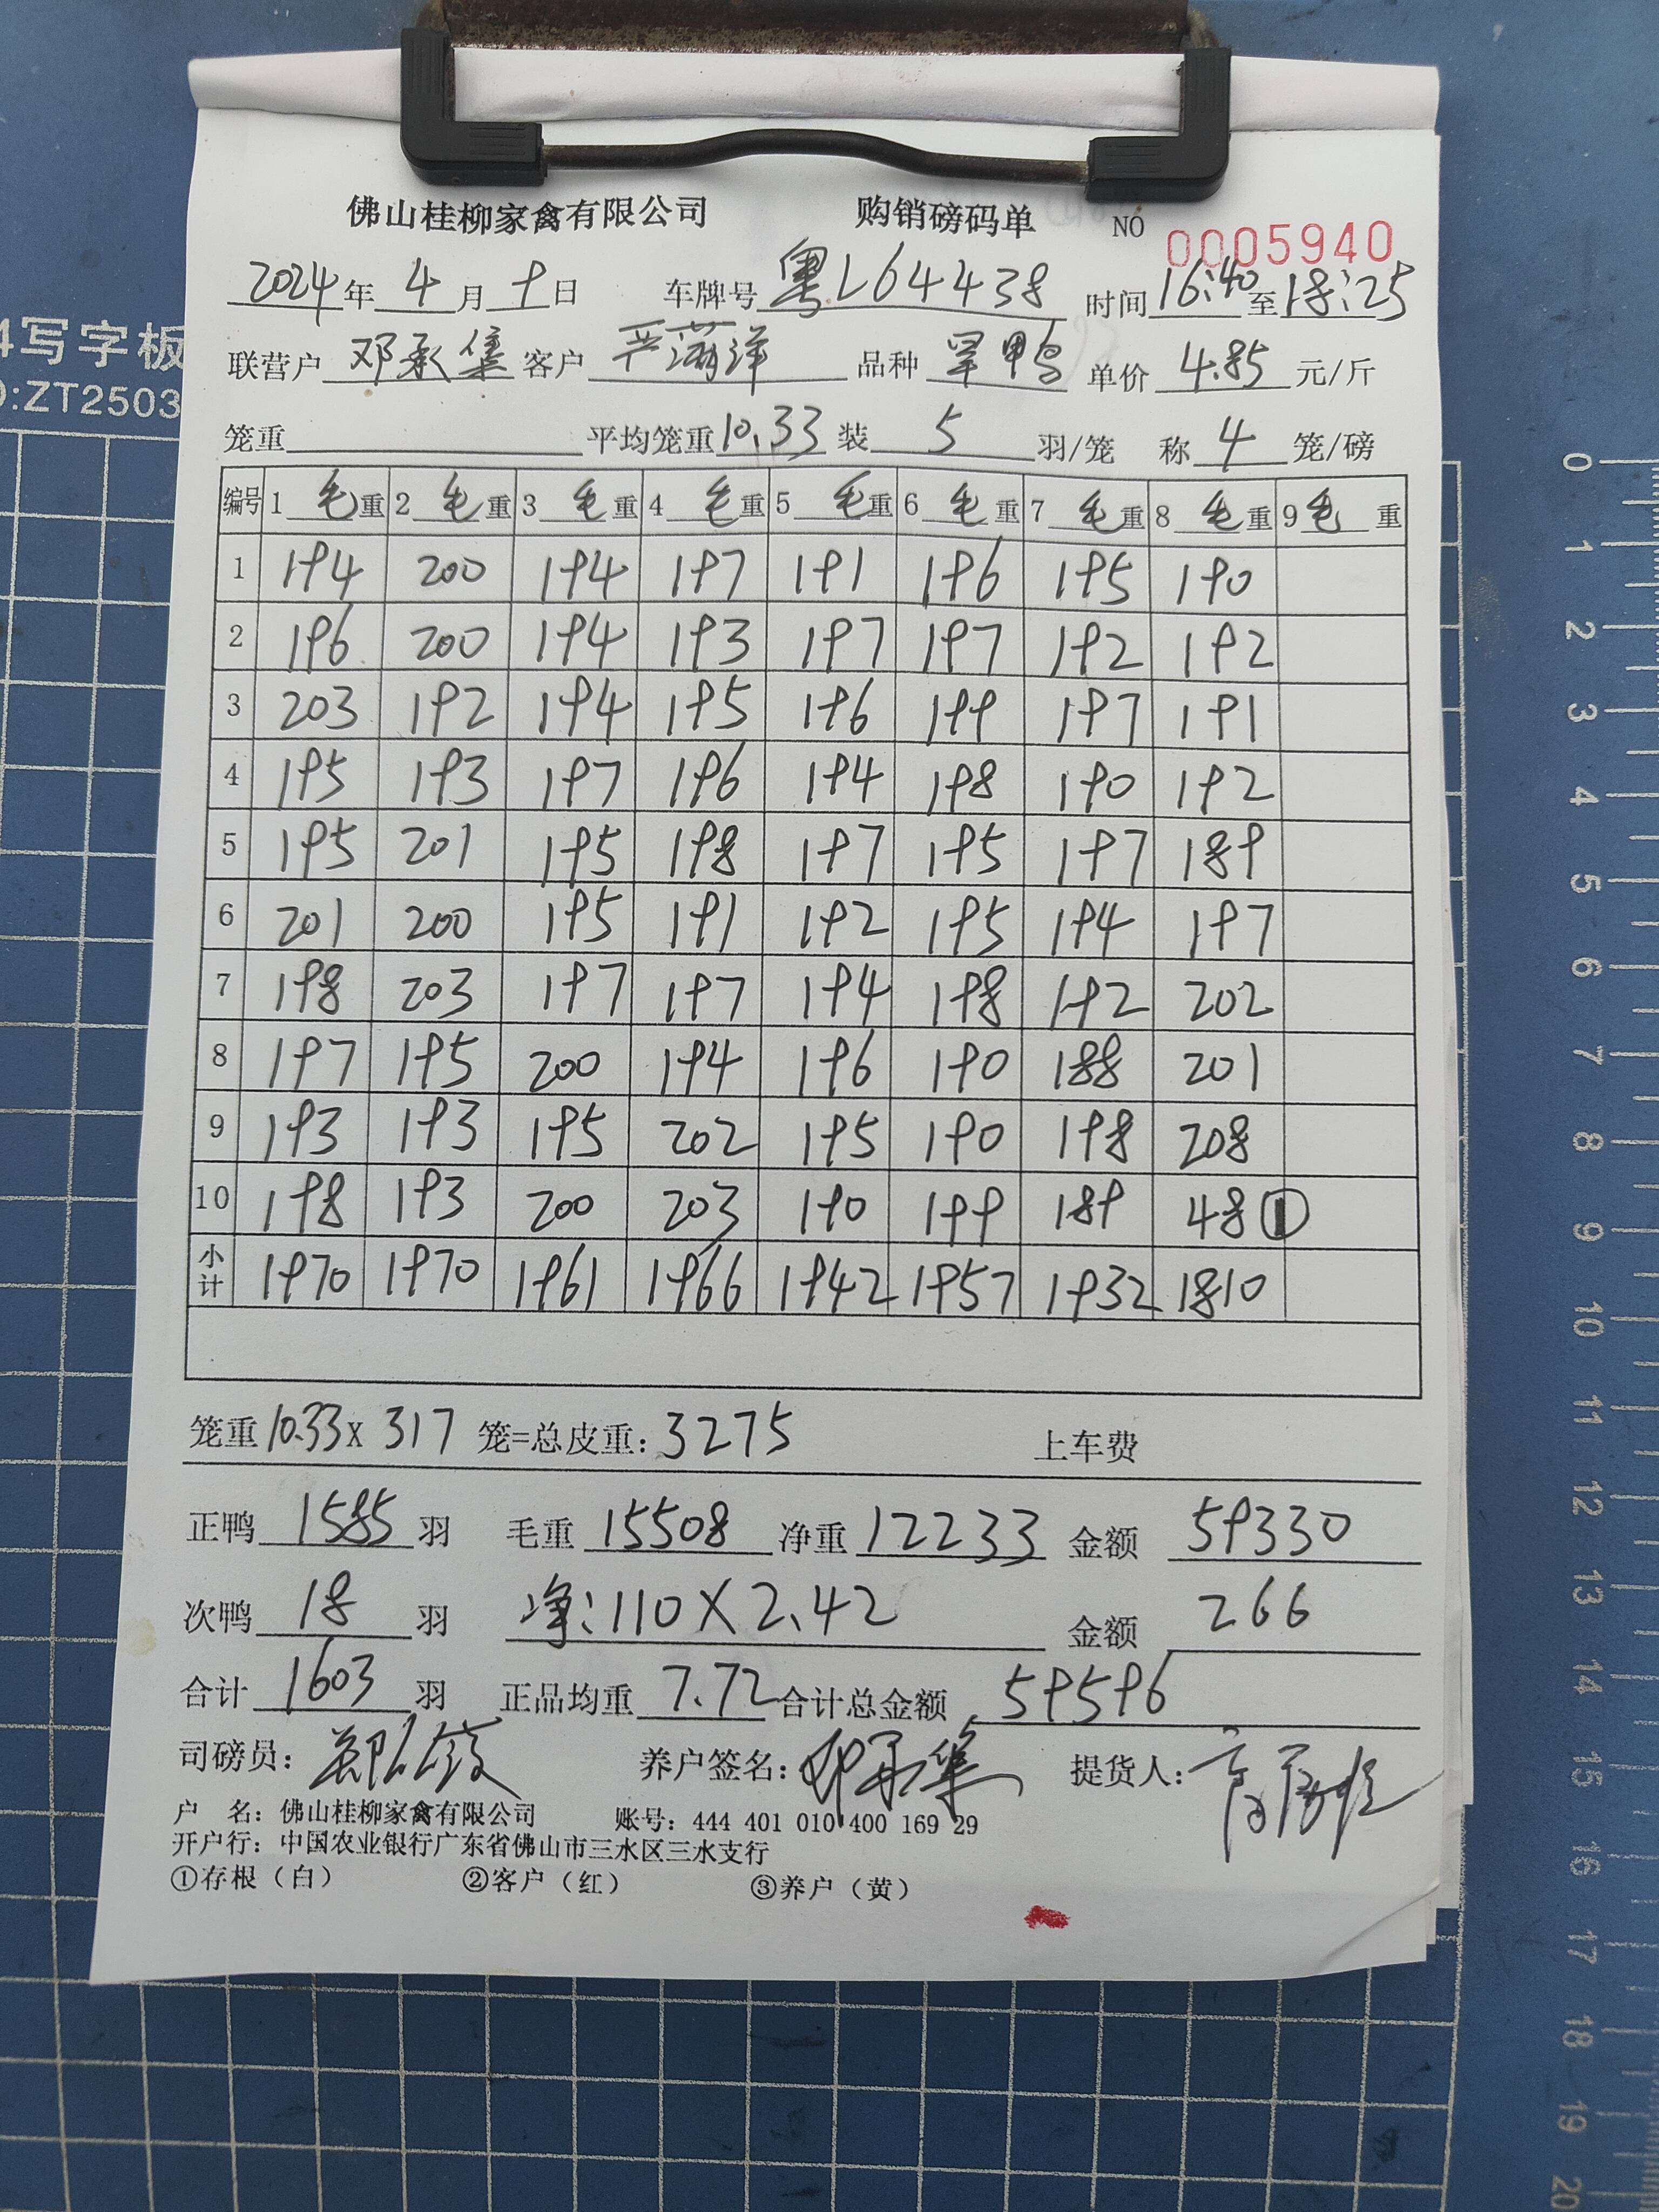 佛山桂柳家禽有限公司 购销磅码单 NO 0005940
2024年 4月 9日 车牌号 粤L64438 时间 16:40 至 18:25
联营户 邓承集 客户 严满洋 品种 旱鸭 单价 4.85 元/斤
笼重 平均笼重 10.33 装 5 羽/笼 称 4 笼/磅
4写字板
D:ZT2503
编号 1 毛重 2 毛重 3 毛重 4 毛重 5 毛重 6 毛重 7 毛重 8 毛重 9 毛重
1 194 200 194 197 191 196 195 190
2 196 200 194 193 197 197 192 192
3 203 192 194 195 196 199 197 191
4 195 193 197 196 194 198 190 192
5 195 201 195 198 197 195 197 189
6 201 200 195 191 192 195 194 197
7 198 203 197 197 194 198 192 202
8 197 195 200 194 196 190 188 201
9 193 193 195 202 195 190 198 208
10 198 193 200 203 190 199 189 48 ①
小计 1970 1970 1961 1966 1942 1957 1932 1810
笼重 10.33 X 317 笼=总皮重: 3275 上车费
正鸭 1585 羽 毛重 15508 净重 12233 金额 59330
次鸭 18 羽 净:110×2.42 金额 266
合计 1603 羽 正品均重 7.72 合计总金额 59596
司磅员: 养户签名: 邓承集 提货人:
户 名: 佛山桂柳家禽有限公司 账号: 444 401 010 400 169 29
开户行: 中国农业银行广东省佛山市三水区三水支行
①存根（白） ②客户（红） ③养户（黄）
0
1
2
3
4
5
6
7
8
9
10
11
12
13
14
15
16
17
18
19
20